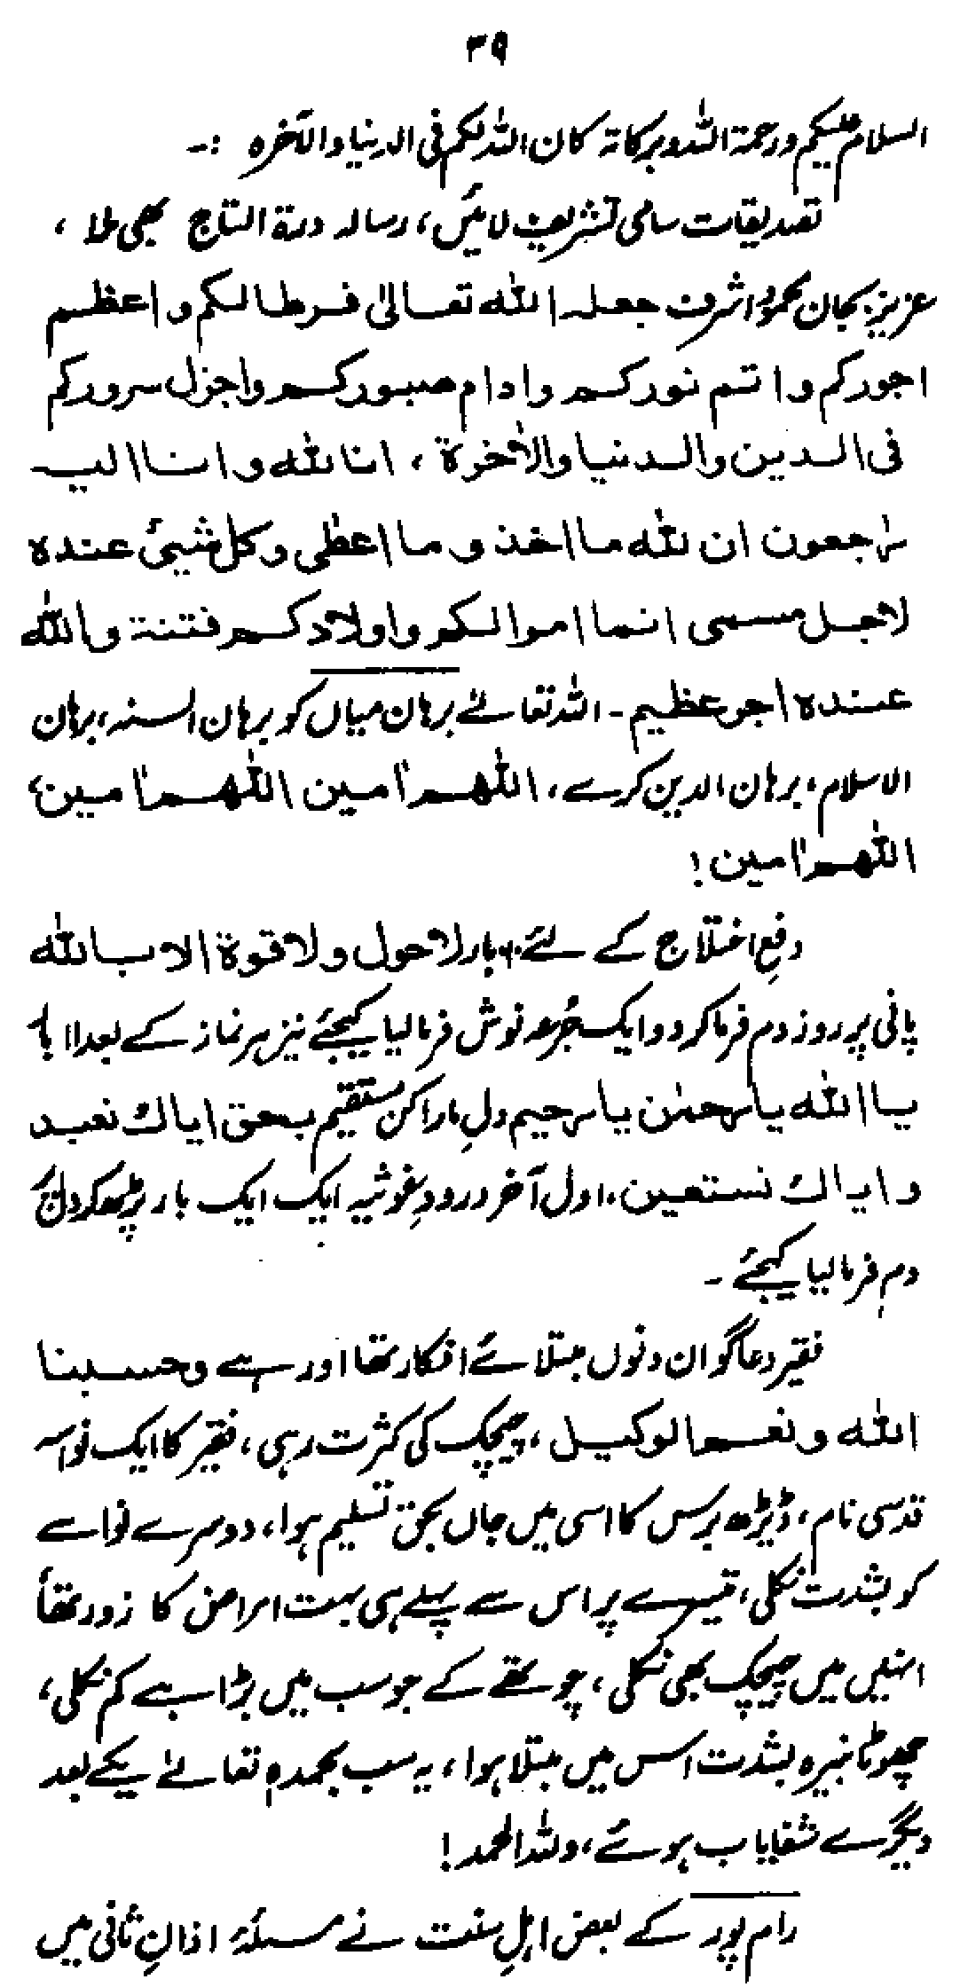 ۳۹
السلام علیکم ورحمۃ اللہ وبرکاتہ کان اللہ لکم فی الدنیا والآخرہ :۔
تصدیقات سامی تشریف لائیں، رسالہ درۃ التاج بھی ملا ،
عزیز بجان محمود اشرف جعلہ اللہ تعالیٰ فرطا لکم و اعظم
اجورکم و اتم نورکم و ادام صبورکم واجزل سرورکم
فی الدین والدنیا والاٰخرۃ ، انا للہ و انا الیہ
راجعون ان للہ ما اخذ و ما اعطٰی و کل شیئ عندہ
لاجل مسمی انما اموالکم و اولادکم فتنۃ واللہ
عندہ اجر عظیم ۔ اللہ تعالےٰ برہان میاں کو برہان السنہ، برہان
الاسلام، برہان الدین کرے ، اللٰھم اٰمین اللٰھم اٰمین،
اللٰھم اٰمین !
دفعِ اختلاج کے لئے ۶۰ بار لاحول ولا قوۃ الا باللہ
پانی پر روز دم فرما کر دو ایک جُرعہ نوش فرما لیا کیجئے نیز ہر نماز کے بعد ۱۱ بار
یا اللہ یا رحمٰن یا رحیم دلِ مارا کن مستقیم بحق ایاک نعبد
و ایاک نستعین ، اول آخر درودِ غوثیہ ایک ایک بار پڑھ کر دل پر
دم فرما لیا کیجئے ۔
فقیر دعاگو ان دنوں مبتلائے افکار تھا اور ہے وحسبنا
اللہ و نعم الوکیل ، چیچک کی کثرت رہی ، فقیر کا ایک نواسہ
قدسی نام ، ڈیڑھ برس کا اسی میں جاں بحق تسلیم ہوا ، دوسرے نواسے
کو بشدت نکلی ، تیسرے پر اس سے پہلے ہی بہت امراض کا زور تھا
انہیں میں چیچک بھی نکلی ، چوتھے کے جو سب میں بڑا ہے کم نکلی ،
چھوٹا نبیرہ بشدت اس میں مبتلا ہوا ، یہ سب بحمدہٖ تعالےٰ یکے بعد
دیگرے شفایاب ہوئے ، وللہ الحمد !
رام پور کے بعض اہلِ سنت نے مسئلۂ اذانِ ثانی میں